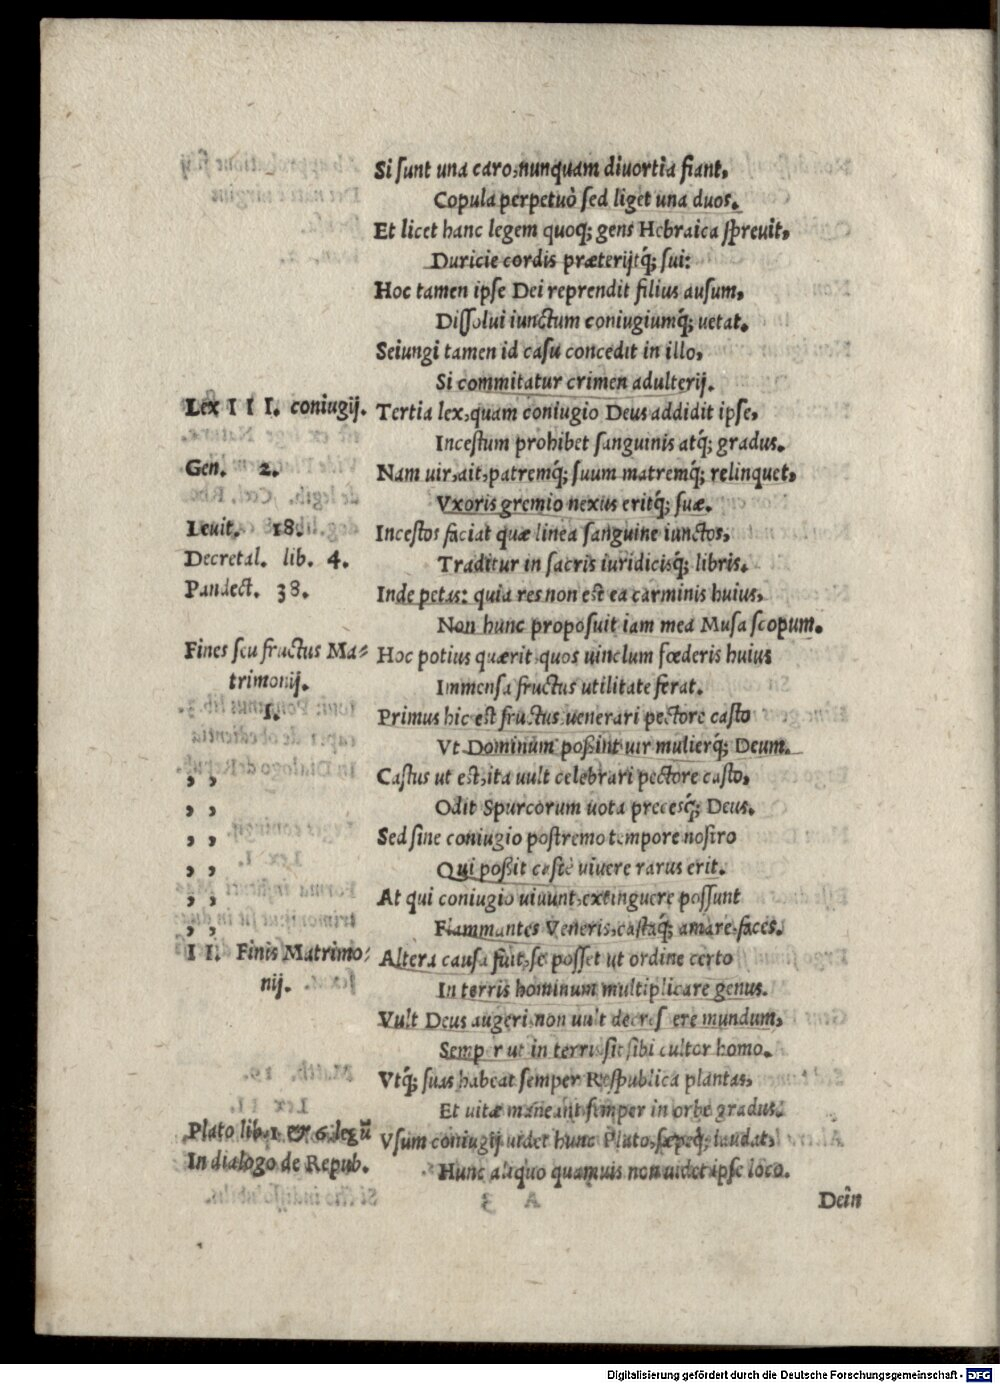 Si ſunt una caro, nunquam diuortia fiant,
Copula perpetuò ſed liget una duos.
Et licet hanc legem quoq; gens Hebraica ſpreuit,
Duricie cordis præterijtq́; ſui:
Hoc tamen ipſe Dei reprendit filius auſum,
Diſſolui iunctum coniugiumq́; uetat.
Seiungi tamen id caſu concedit in illo,
Si commitatur crimen adulterij.
Lex III. coniugij. Tertia lex, quam coniugio Deus addidit ipſe,
Inceſtum prohibet ſanguinis atq́; gradus.
Gen. 2. Nam uir, ait, patremq́; ſuum matremq́; relinquet,
Vxoris gremio nexus eritq́; ſuæ.
Leuit. 18. Inceſtos faciat quæ linea ſanguine iunctos,
Decretal. lib. 4. Traditur in ſacris iuridicisq́; libris.
Pandect. 38. Inde petas: quia res non eſt ea carminis huius,
Non hunc propoſuit iam mea Muſa ſcopum.
Fines ſeu fructus Ma= Hoc potius quærit, quos uinclum fœderis huius
trimonij. Immenſa fructus utilitate ferat.
I. Primus hic eſt fructus, uenerari pectore caſto
Vt Dominum poßint uir mulierq́; Deum.
, , Caſtus ut eſt, ita uult celebrari pectore caſto,
, , Odit Spurcorum uota precesq́; Deus.
, , Sed ſine coniugio poſtremo tempore noſtro
, , Qui poßit caſtè uiuere rarus erit.
, , At qui coniugio uiuunt, extinguere poſſunt
, , Flammantes Veneris, caſtaq́; amare faces.
II. Finis Matrimo= Altera cauſa fuit, ſe poſſet ut ordine certo
nij. In terris hominum multiplicare genus.
Vult Deus augeri, non uult decreſ ere mundum,
Semp r ut in terris ſit ſibi cultor homo.
Vtq́; ſuas habeat ſemper Reſpublica plantas,
Et uitæ maneant ſemper in orbe gradus.
Plato lib. 1. & 6. legũ Vſum coniugij uidet hunc Plato, ſæpeq́; laudat,
In dialogo de Repub. Hunc aliquo quamuis non uidet ipſe loco.
Dein
Digitalisierung gefördert durch die Deutsche Forschungsgemeinschaft - DFG